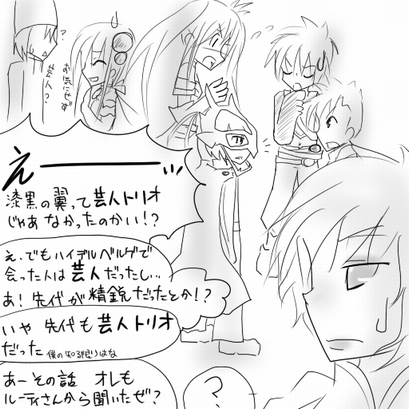 ?
芸人?
お気にせず
えーーーーッ
漆黒の翼って芸人トリオ
じゃあなかったのかい!?
え、でもハイデルベルグで
会った人は芸人だったし…
あ!先代が精鋭だったとか!?
いや先代も芸人トリオ
だった 僕の知る限りはな
あーその話 オレも
ルーティさんから聞いたぜ?
?